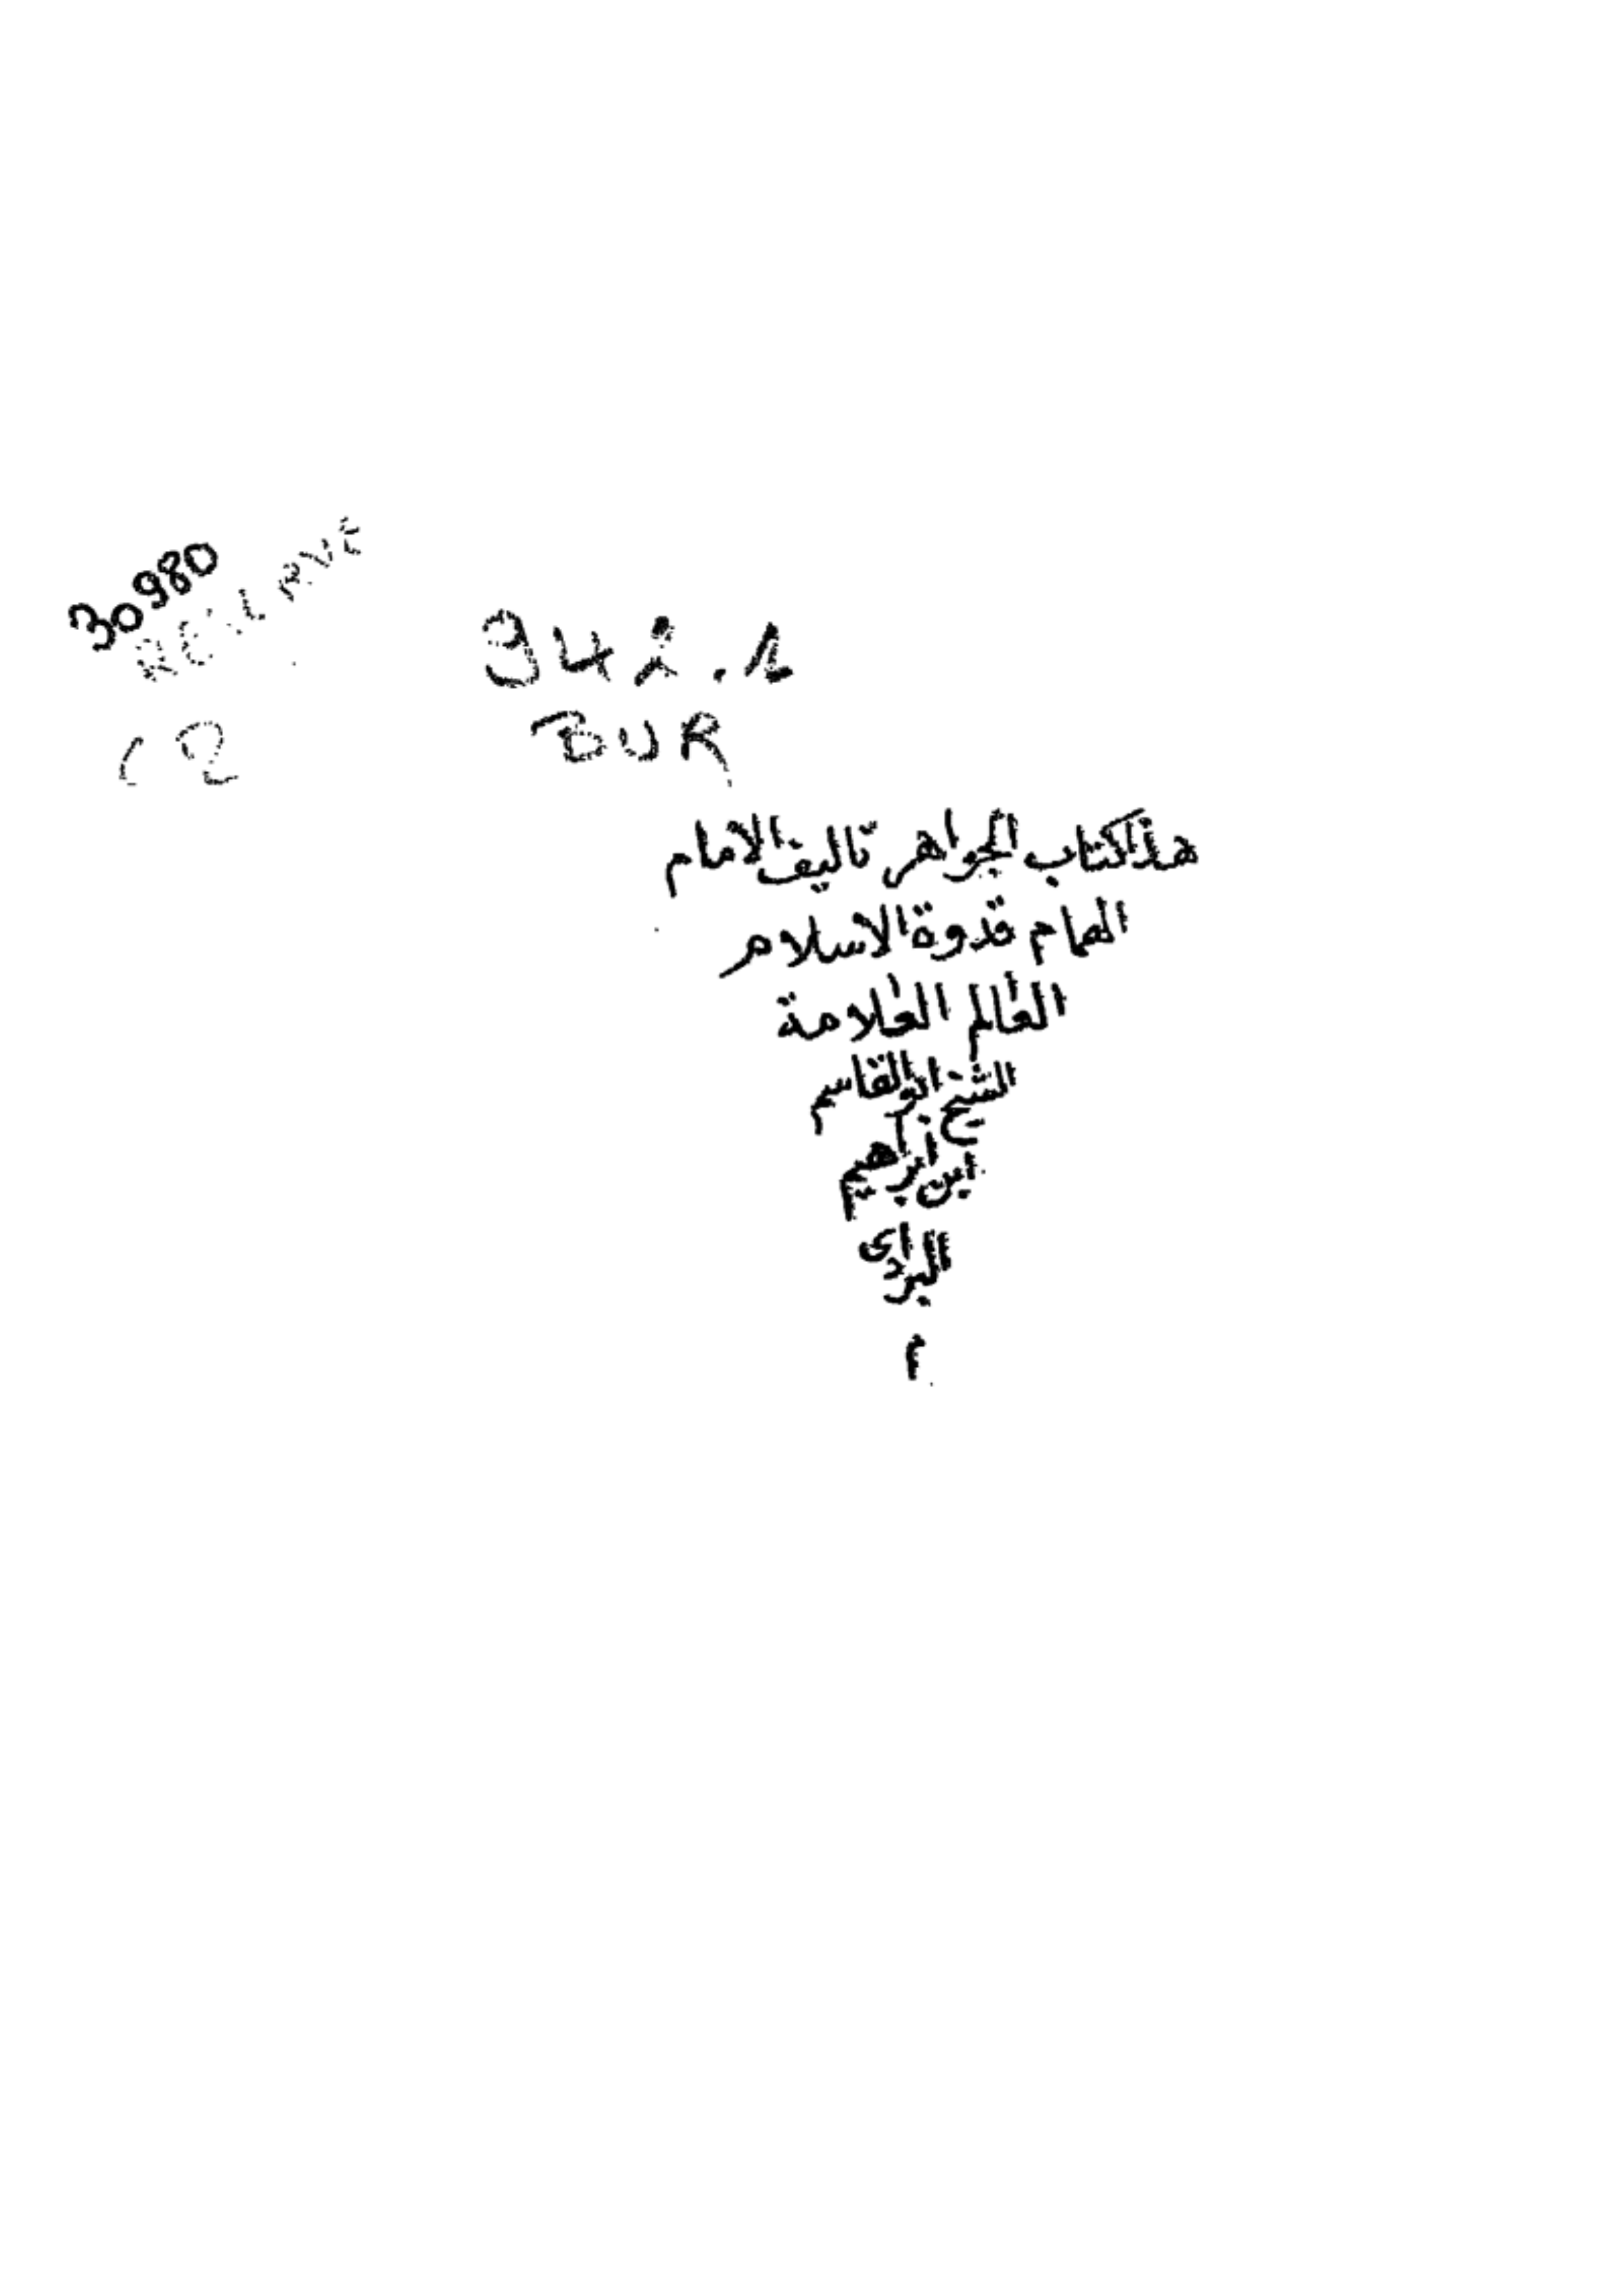 30980
RESERVE
342.1
C2
BUR
هذا كتاب الجواهر تاليف الامام
الهمام قدوة الاسلام
العالم العلامة
الشيخ ابو القاسم
ابن ابراهيم
البرادى
م